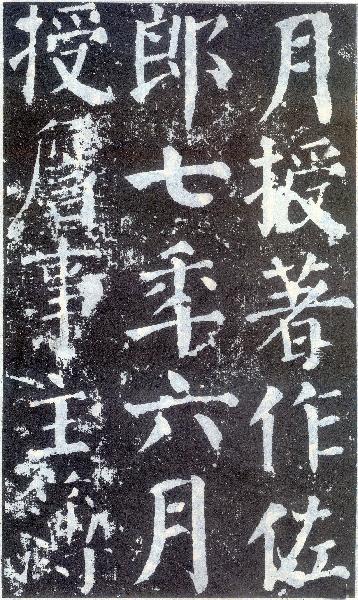 月授著作佐
郎七年六月
授詹事主簿